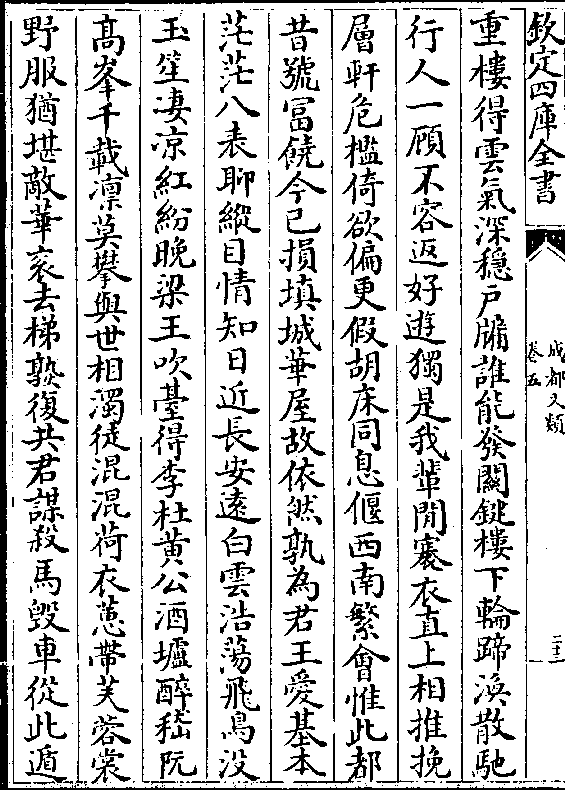 欽定四庫全書
成都文類
卷五
二十二
重樓得雲氣深穩户牖誰能發關鍵樓下輪蹄渙散馳
行人一顧不容返好遊獨是我輩閒褰衣直上相推挽
層軒危檻倚欲偏更假胡床同息偃西南繁會惟此都
昔號冨饒今已損填城華屋故依然孰為君王愛基本
茫茫八表聊縱目情知日近長安遠白雲浩蕩飛鳥没
玉笙凄凉紅紛晚梁王吹臺得李杜黄公酒壚醉嵇阮
髙峯千載凛莫攀與世相濁徒混混荷衣蕙帶芙蓉裳
野服猶堪敵華衮去梯孰復共君謀殺馬毁車從此遁